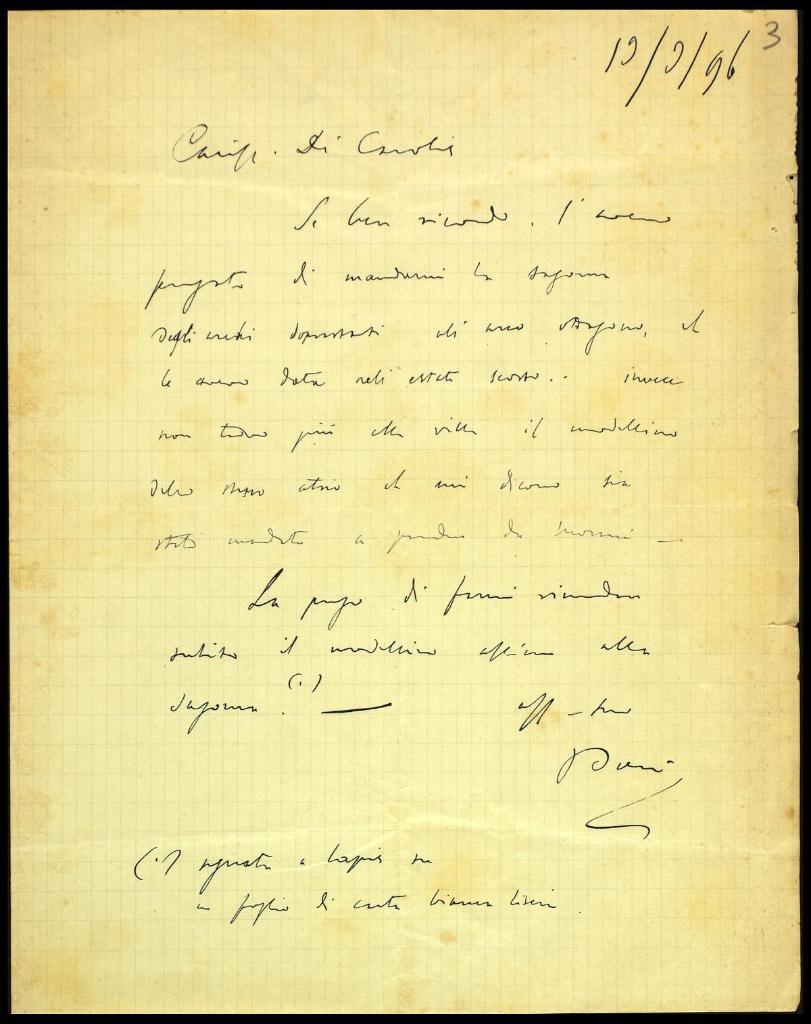 3
19/9/96
Di Carolis
Se ben ricordo, l'avevo
pregato di mandarmi la sagoma
degli archi ali arco ottagono, che
le avevo data nell'estate scorsa.. invece
non trovo più alla villa il modellino
dello stesso atrio che mi dicono sia
stato mandato a prendere da
La prego di farmi rimandare
subito il modellino assieme alla
sagoma (.) — aff-mo
(.) segnata a lapis su
un foglio di carta bianca liscia.